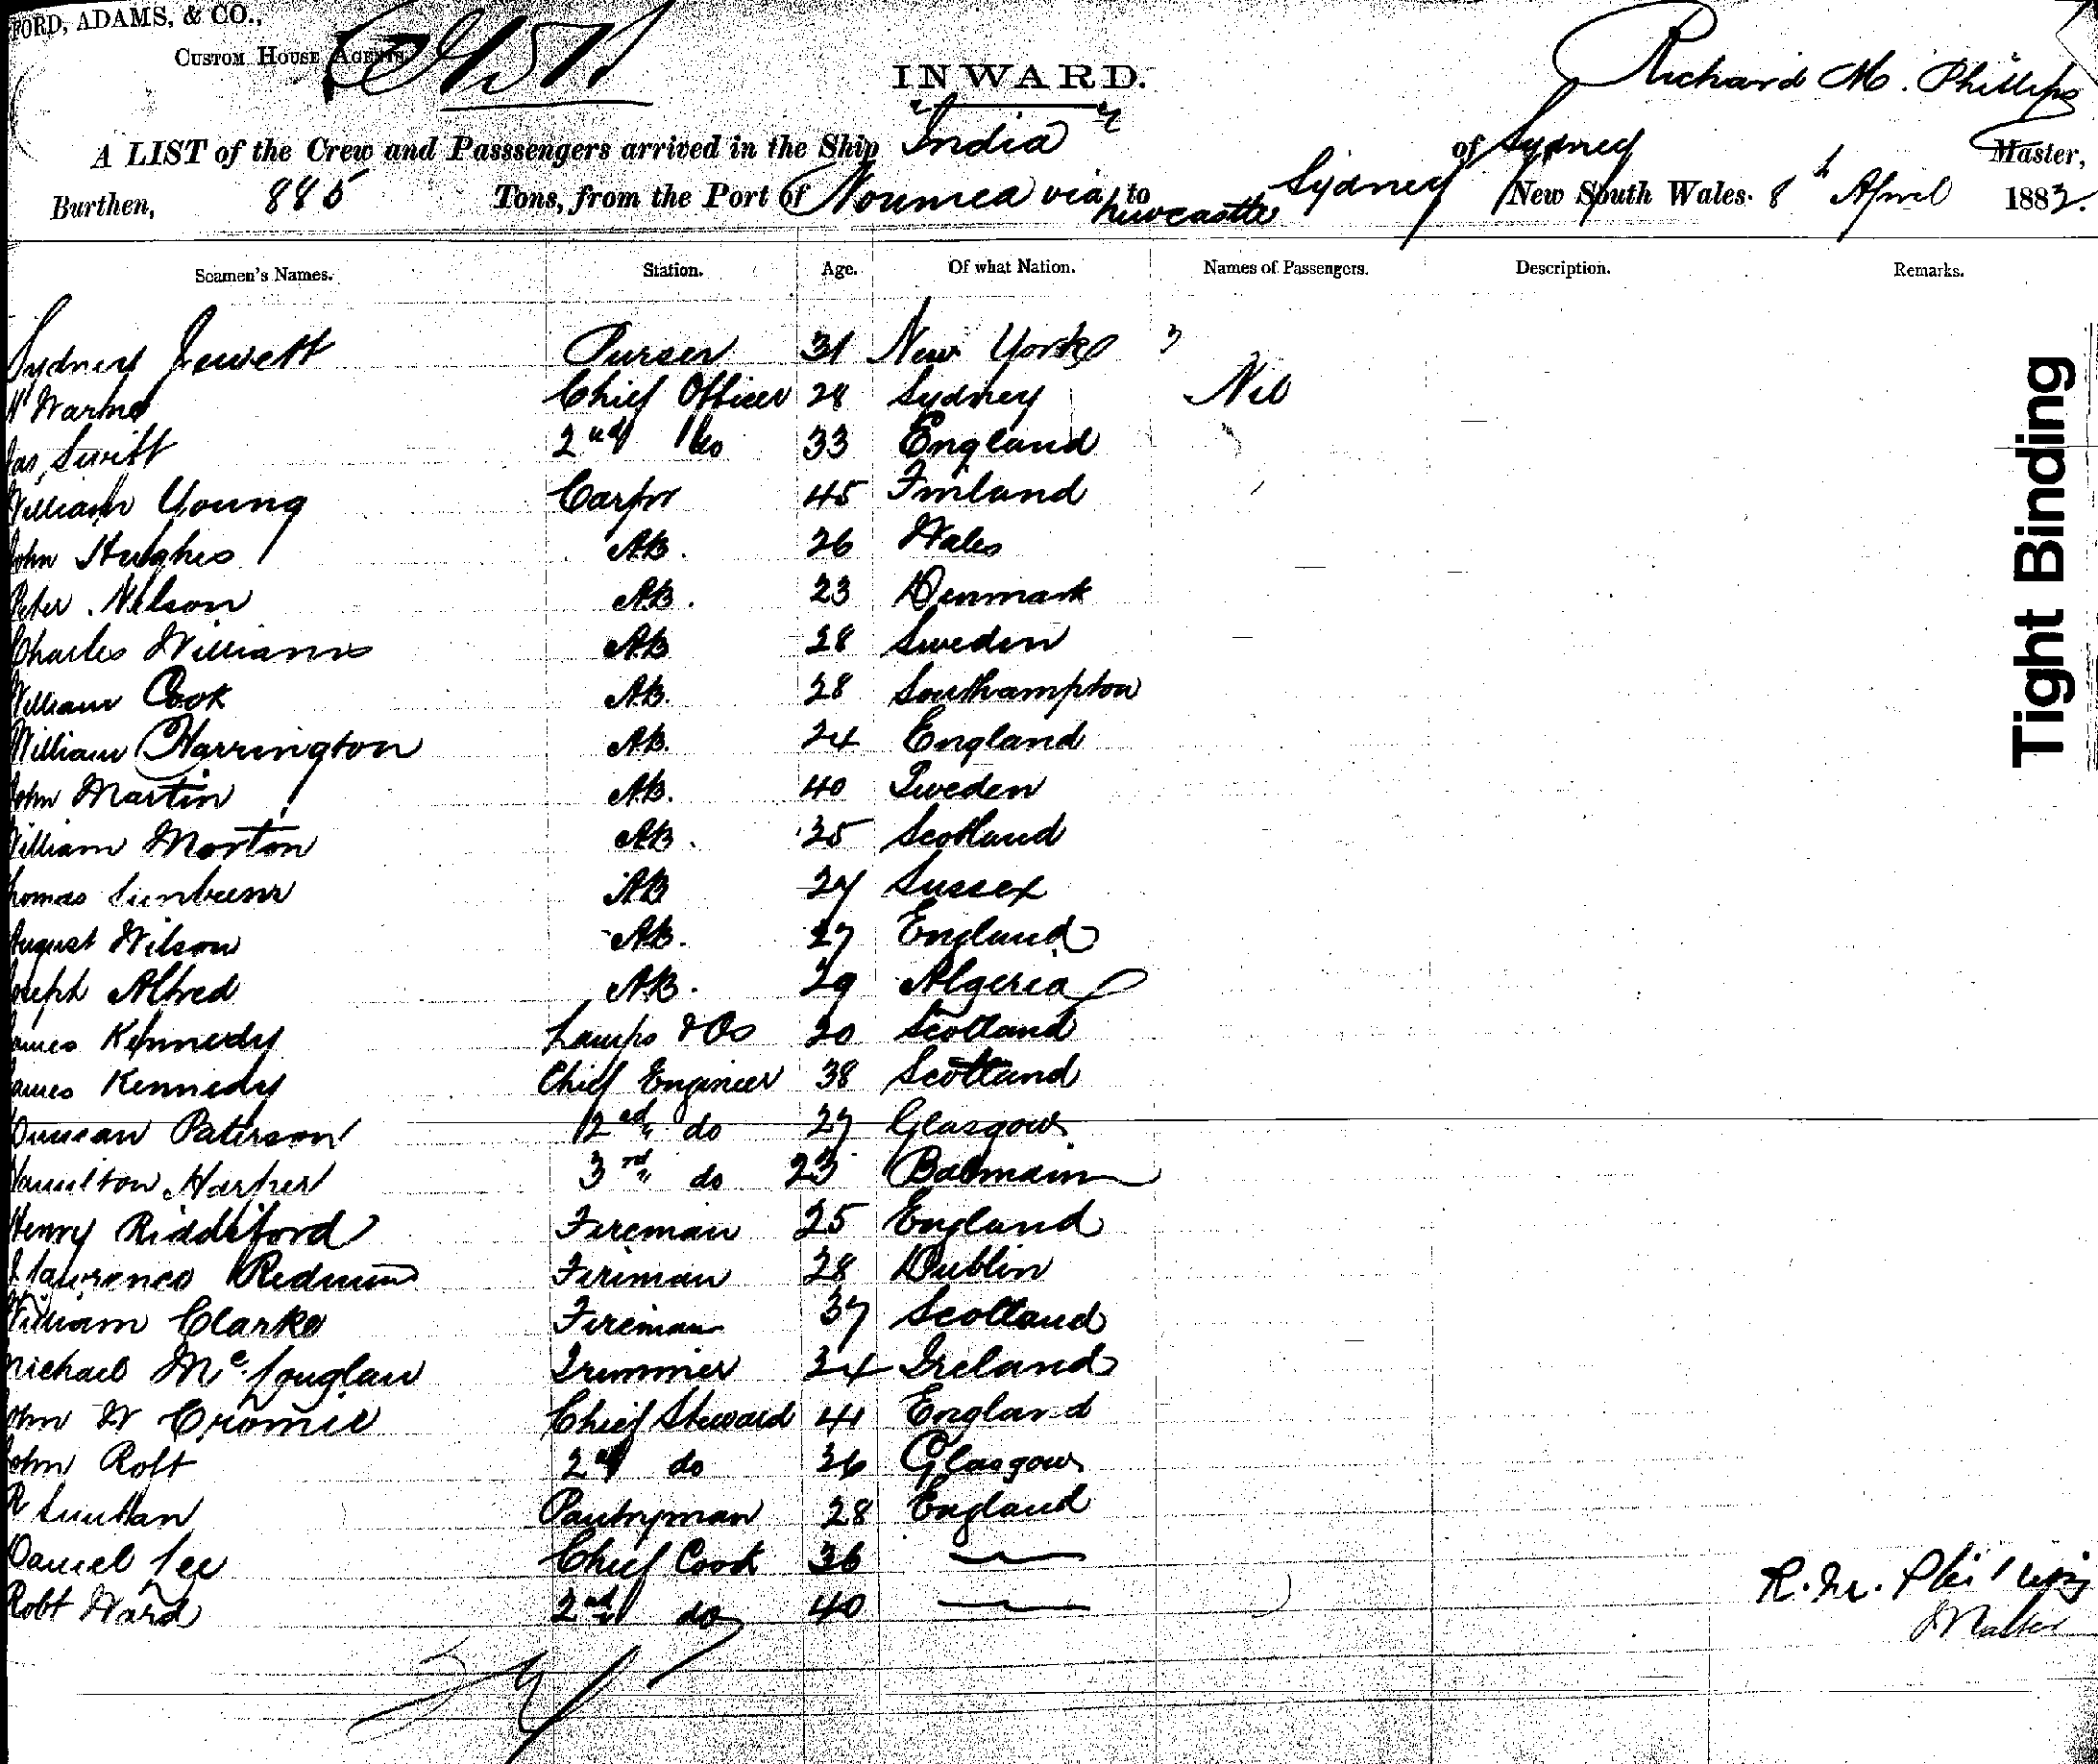 FORD, ADAMS, & CO.,
CUSTOM HOUSE AGENTS.
INWARD.
Richard M. Phillips
A LIST of the Crew and Passsengers arrived in the Ship "India" of Sydney Master,
Burthen, 885 Tons, from the Port of Noumea via Newcastle to Sydney New South Wales. 8th April 1882.
Seamen's Names. Station. Age. Of what Nation. Names of Passengers. Description. Remarks.
Sydney Jewett Purser 31 New York
Chief Officer 28 Sydney Nil
Jas Swift 2nd do 33 England
William Young Carpr 45 Finland
John Hughes AB. 26 Wales
Peter Nelson AB. 23 Denmark
Charles Williams AB 28 Sweden
William Cook AB. 28 Southampton
William Harrington AB. 24 England
John Martin AB. 40 Sweden
William Morton AB. 35 Scotland
Thomas AB Sussex
August Wilson AB. 27 England
Joseph Alfred AB. 29 Algeria
James Kennedy Lamps & Os 20 Scotland
James Kennedy Chief Engineer 38 Scotland
Duncan Paterson 2nd do 27 Glasgow
Hamilton Harper 3rd do 23 Balmain
Henry Riddiford Fireman 25 England
Lawrence Redmun Fireman 28 Dublin
William Clarke Fireman 37 Scotland
Michael McLouglan Trimmer 34 Ireland
John W Cromie Chief Steward 41 England
John Roft 2nd do 36 Glasgow
R Pantryman 28 England
Daniel Lee Chief Cook 36 —
Robt Ward 2nd do 40 —
R. M. Phillips
Master
Tight Binding